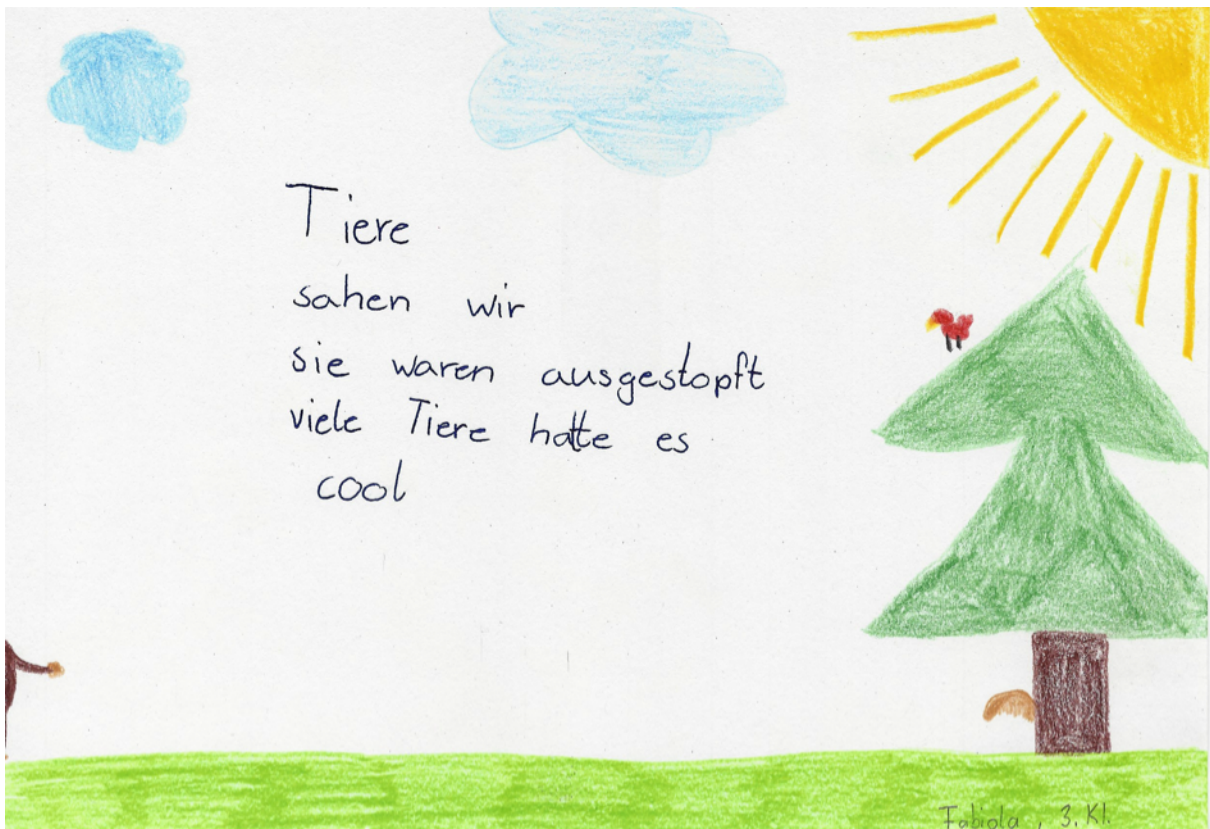 Tiere
sahen wir
sie waren ausgestopft
viele Tiere hatte es
cool
Fabiola, 3. Kl.